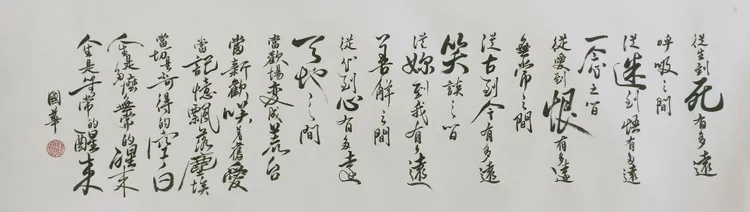 從生到死有多遠
呼吸之間
從迷到悟有多遠
一念之間
從愛到恨有多遠
無常之間
從古到今有多遠
笑談之間
從妳到我有多遠
善解之間
從心到心有多遠
天地之間
當歡場變成荒台
當新歡笑著舊愛
當記憶飄落塵埃
當一切是不可得的空白
人生是無常的醒來
人生是無常的醒來
國華